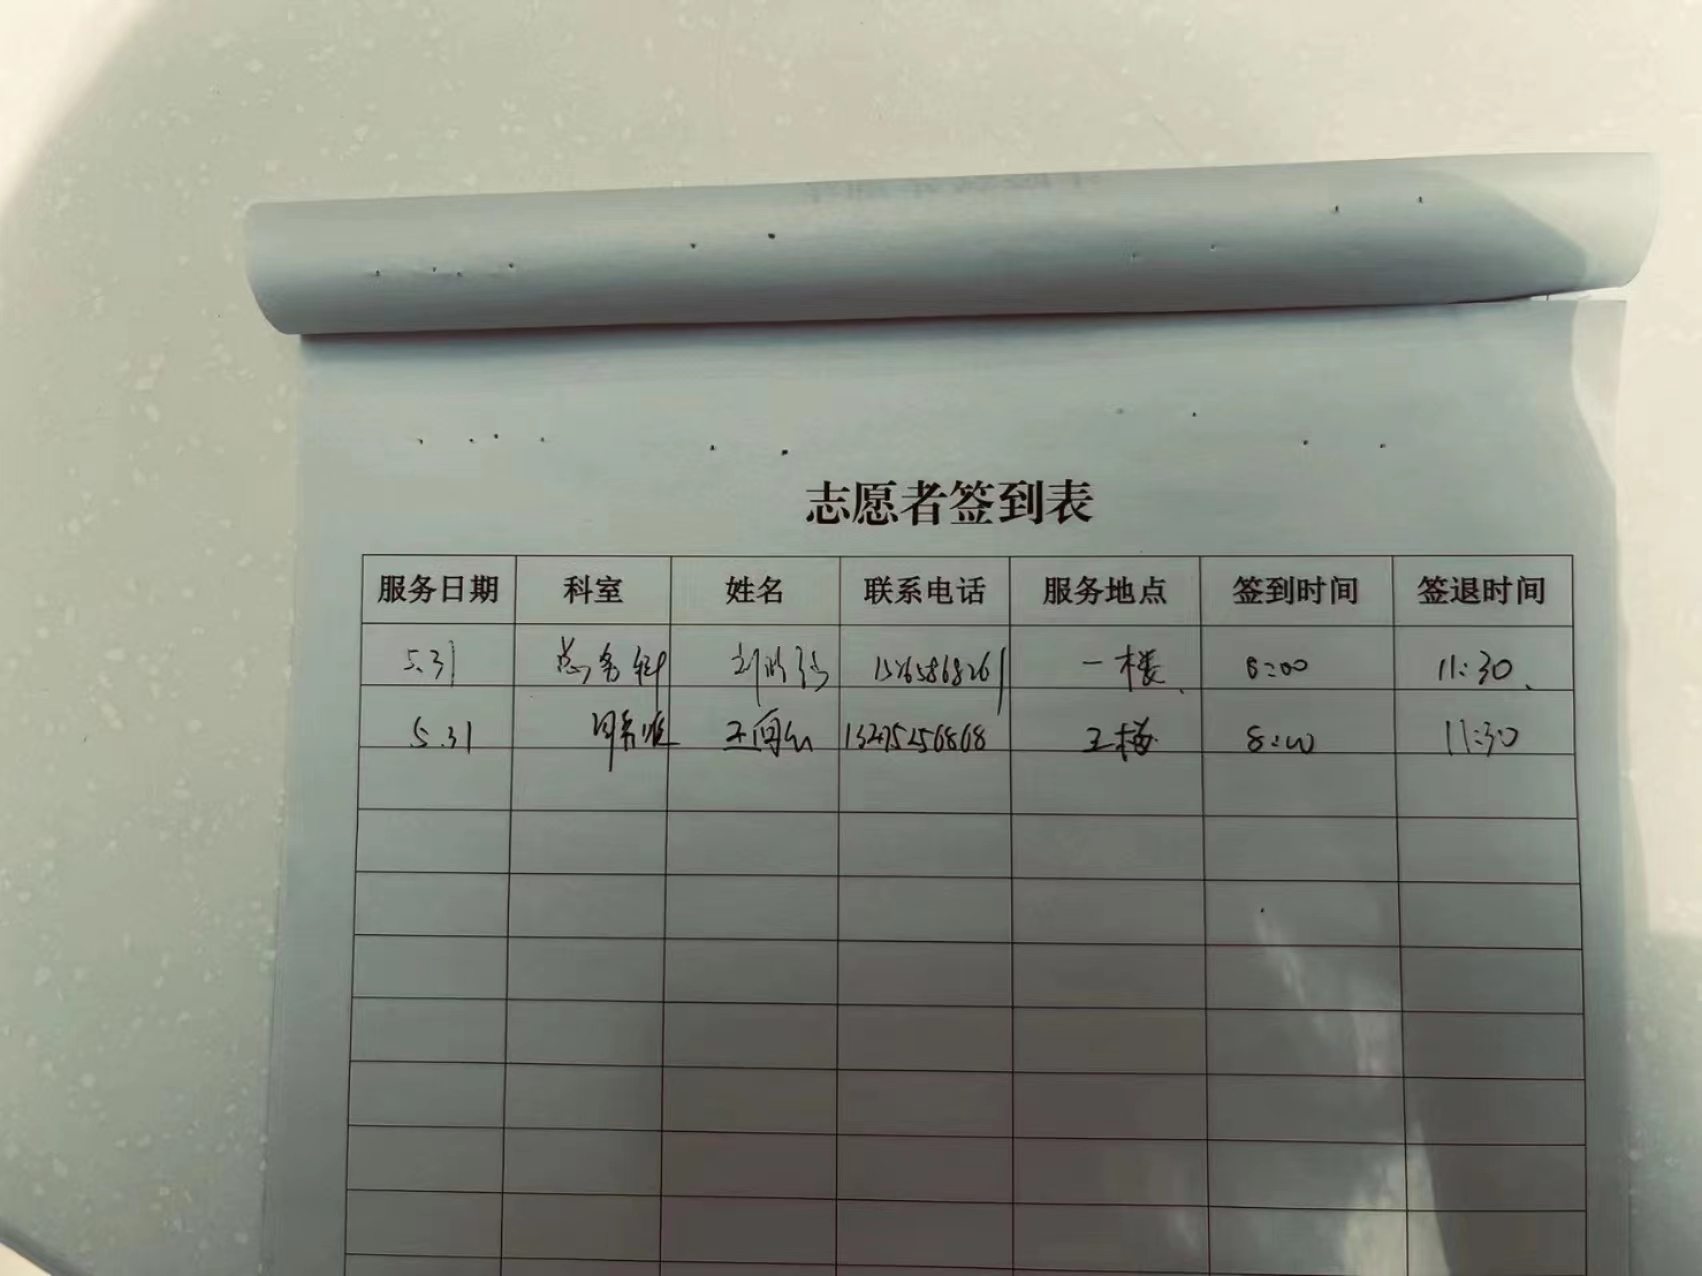 志愿者签到表
服务日期 科室 姓名 联系电话 服务地点 签到时间 签退时间
5.31 总务科 一楼 8:00 11:30
5.31 13275256868 8:00 11:30